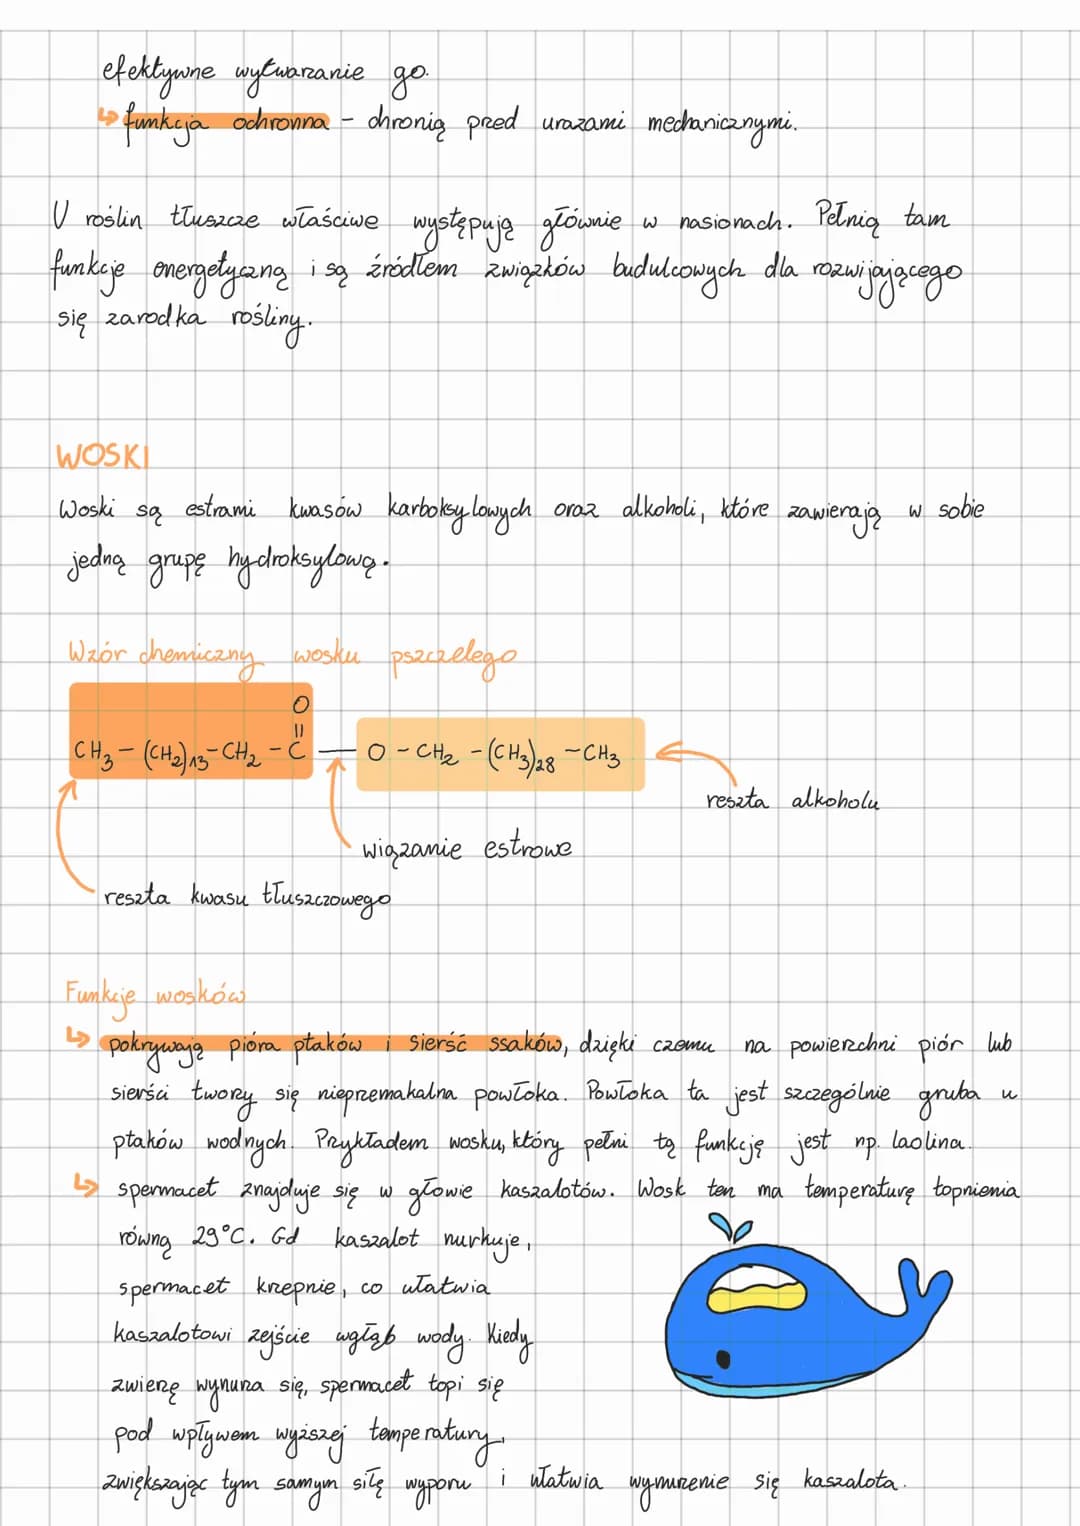 efektywne wytwarzanie go.
↳ funkcja ochronna - chronią przed urazami mechanicznymi.
U roślin tłuszcze właściwe występują głównie w nasionach. Pełnią tam
funkcje energetyczną i są źródłem związków budulcowych dla rozwijającego
się zarodka rośliny.
WOSKI
Woski są estrami kwasów karboksylowych oraz alkoholi, które zawierają w sobie
jedną grupę hydroksylową.
Wzór chemiczny wosku pszczelego
O
||
CH₃ - (CH₂)₁₃ - CH₂ - C — O - CH₂ - (CH₃)₂₈ - CH₃
reszta alkoholu
wiązanie estrowe
reszta kwasu tłuszczowego
Funkcje wosków
↳ pokrywają pióra ptaków i sierść ssaków, dzięki czemu na powierzchni piór lub
sierści tworzy się nieprzemakalna powłoka. Powłoka ta jest szczególnie gruba u
ptaków wodnych. Przykładem wosku, który pełni tą funkcję jest np. laolina.
↳ spermacet znajduje się w głowie kaszalotów. Wosk ten ma temperaturę topnienia
równą 29°C. Gd kaszalot nurkuje,
spermacet krzepnie, co ułatwia
kaszalotowi zejście wgłąb wody. Kiedy
zwierzę wynurza się, spermacet topi się
pod wpływem wyższej temperatury,
zwiększając tym samym siłę wyporu i ułatwia wynurzenie się kaszalota.